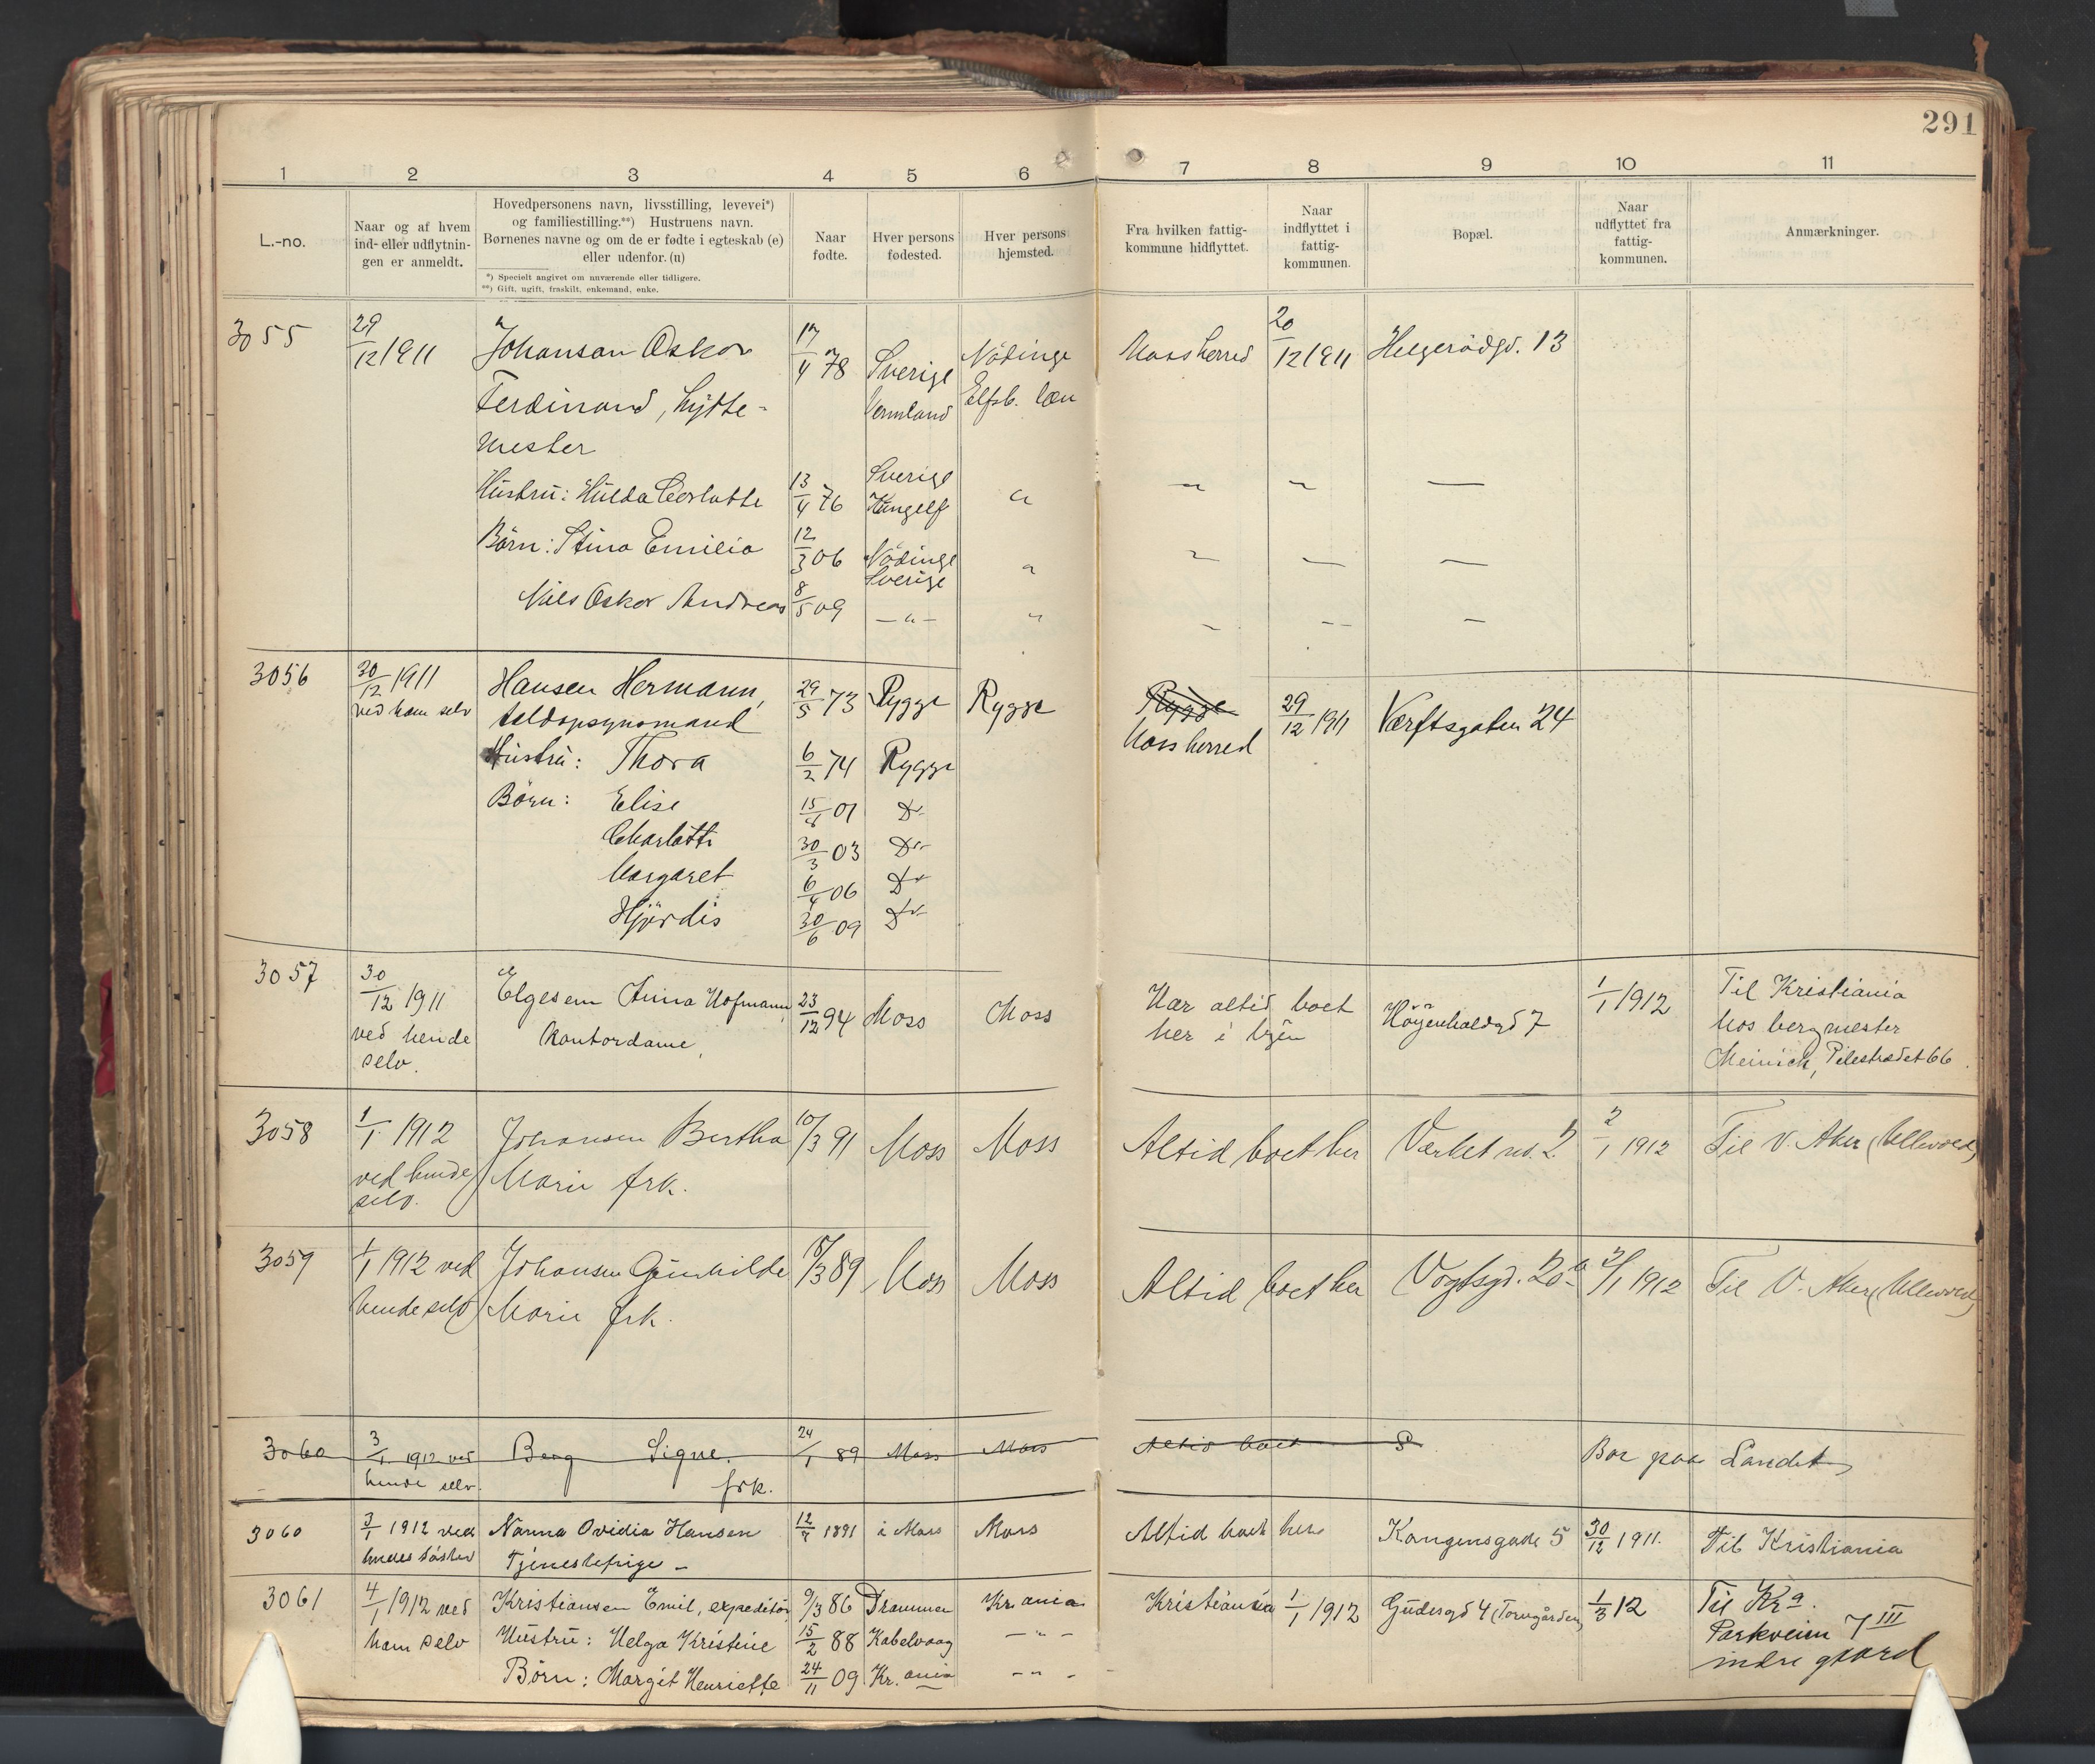 291
1 2 3 4 5 6 7 8 9 10 11
L.-no.
Naar og af hvem
ind- eller udflytnin-
gen er anmeldt.
Hovedpersonens navn, livsstilling, levevei*)
og familiestilling.**) Hustruens navn.
Børnenes navne og om de er fødte i egteskab (e)
eller udenfor. (u)
*) Specielt angivet om nuværende eller tidligere.
**) Gift, ugift, fraskilt, enkemand, enke.
Naar
fødte.
Hver persons
fødested.
Hver persons
hjemsted.
Fra hvilken fattig-
kommune hidflyttet.
Naar
indflyttet i
fattig-
kommunen.
Bopæl.
Naar
udflyttet fra
fattig-
kommunen.
Anmærkninger.
3055 29/12 1911 Johanson Oskar 17/4 78 Sverige Nödinge Moss herred 20/12 1911 Helgerödgd. 13
Ferdinand, hytte- Vermland Elfsb. læn
mester
Hustru: Hulda 13/4 76 Sverige Kungelf " — — —
Börn: Stina Emilia 12/3 06 Nödinge Sverige " — — —
Nils Oskar Andreas 8/5 09 — " — " — — —
3056 30/12 1911 Hansen Hermann, 29/5 73 Rygge Rygge Rygge 29/12 1911 Værftsgaten 24
ved ham selv toldopsynsmand Moss herred
Hustru: Thora 6/2 74 Rygge
Börn: Elise 15/8 01 Do
Charlotte 30/3 03 Do
Margaret 6/4 06 Do
Hjördis 30/6 09 Do
3057 30/12 1911 Elgesem Anna Hofmann, 23/12 94 Moss Moss Har altid boet Höyenholdgd 7 1/1 1912 Til Kristiania
ved hende Kontordame, her i byen hos bergmester
selv. Meinich, Pilestrædet 66.
3058 1/1 1912 Johansen Bertha 10/3 91 Moss Moss Altid boet her Værket no. 2. 2/1 1912 Til V. Aker (Ullevold)
ved hende Marie frk.
selv.
3059 1/1 1912 ved Johansen Gunhilde 15/3 89 Moss Moss Altid boet her Vogtsgd. 20a 2/1 1912 Til V. Aker (Ullevold)
hende selv Marie frk.
3060 3/1 1912 ved Berg Signe. 24/1 89 Moss Moss Altid boet Bor paa Landet
hende selv. frk.
3060 3/1 1912 ved Nanna Ovidia Hansen 12/7 1891 i Moss Moss Altid boet her Kongensgade 5 30/12 1911. Til Kristiania
hendes söster Tjenestepige —
3061 4/1 1912 ved Kristiansen Emil, expeditör 9/3 86 Drammen Kr.ania Kristiania 1/1 1912 Gudesgd 4 (Torvgården) 1/3 12 Til Kra.
ham selv Hustru: Helga Kristine 15/2 88 Kabelvaag — " — Parkveien 7 III
Börn: Margit Henriette 24/11 09 Kr.ania — " — indre gaard